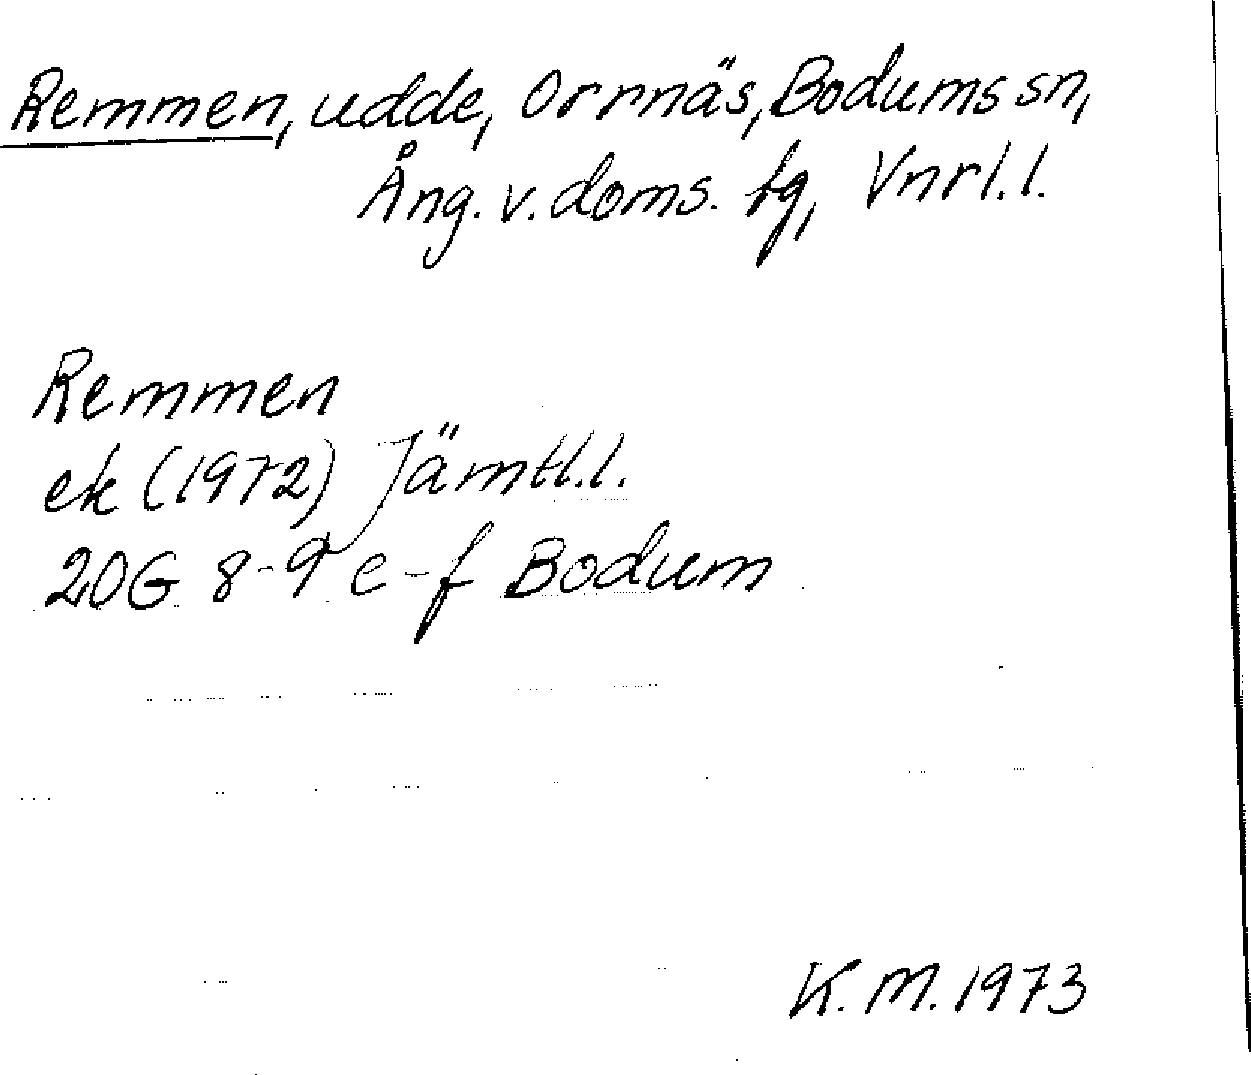 Remmen, udde, Orrnäs, Bodums sn,
Ång. v. doms. tg, Vnrl. l.
Remmen
ek (1972) Jämtl. l.
20G 8-9 e-f Bodum
K. M. 1973